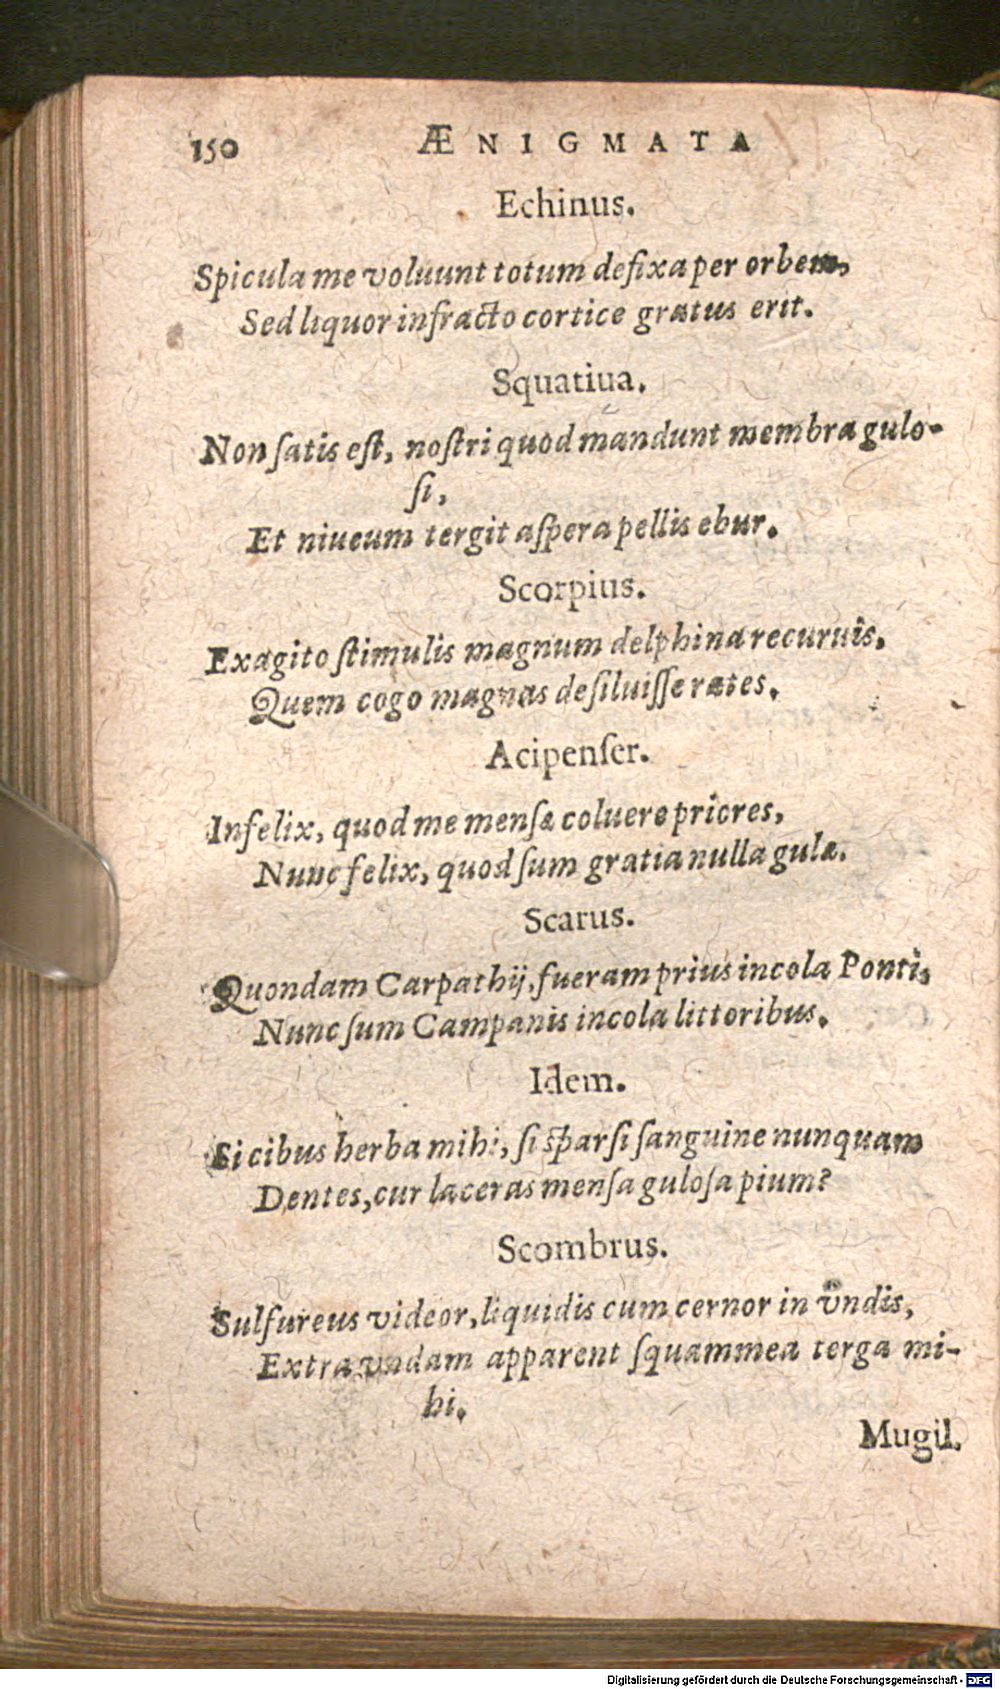 150 ÆNIGMATA
Echinus.
Spicula me voluunt totum defixa per orbem,
Sed liquor infracto cortice gratus erit.
Squatiua.
Non ſatis eſt, noſtri quod mandunt membra gulo-
ſi,
Et niueum tergit aſpera pellis ebur.
Scorpius.
Exagito ſtimulis magnum delphina recuruis,
Quem cogo magnas deſiluiſſe rates.
Acipenſer.
Infelix, quod me menſæ coluere priores,
Nunc felix, quod ſum gratia nulla gulæ.
Scarus.
Quondam Carpathij, fueram prius incola Ponti,
Nunc ſum Campanis incola littoribus.
Idem.
Si cibus herba mihi, ſi sparſi ſanguine nunquam
Dentes, cur laceras menſa guloſa pium?
Scombrus.
Sulfureus videor, liquidis cum cernor in vndis,
Extra vndam apparent ſquammea terga mi-
hi.
Mugil.
Digitalisierung gefördert durch die Deutsche Forschungsgemeinschaft - DFG